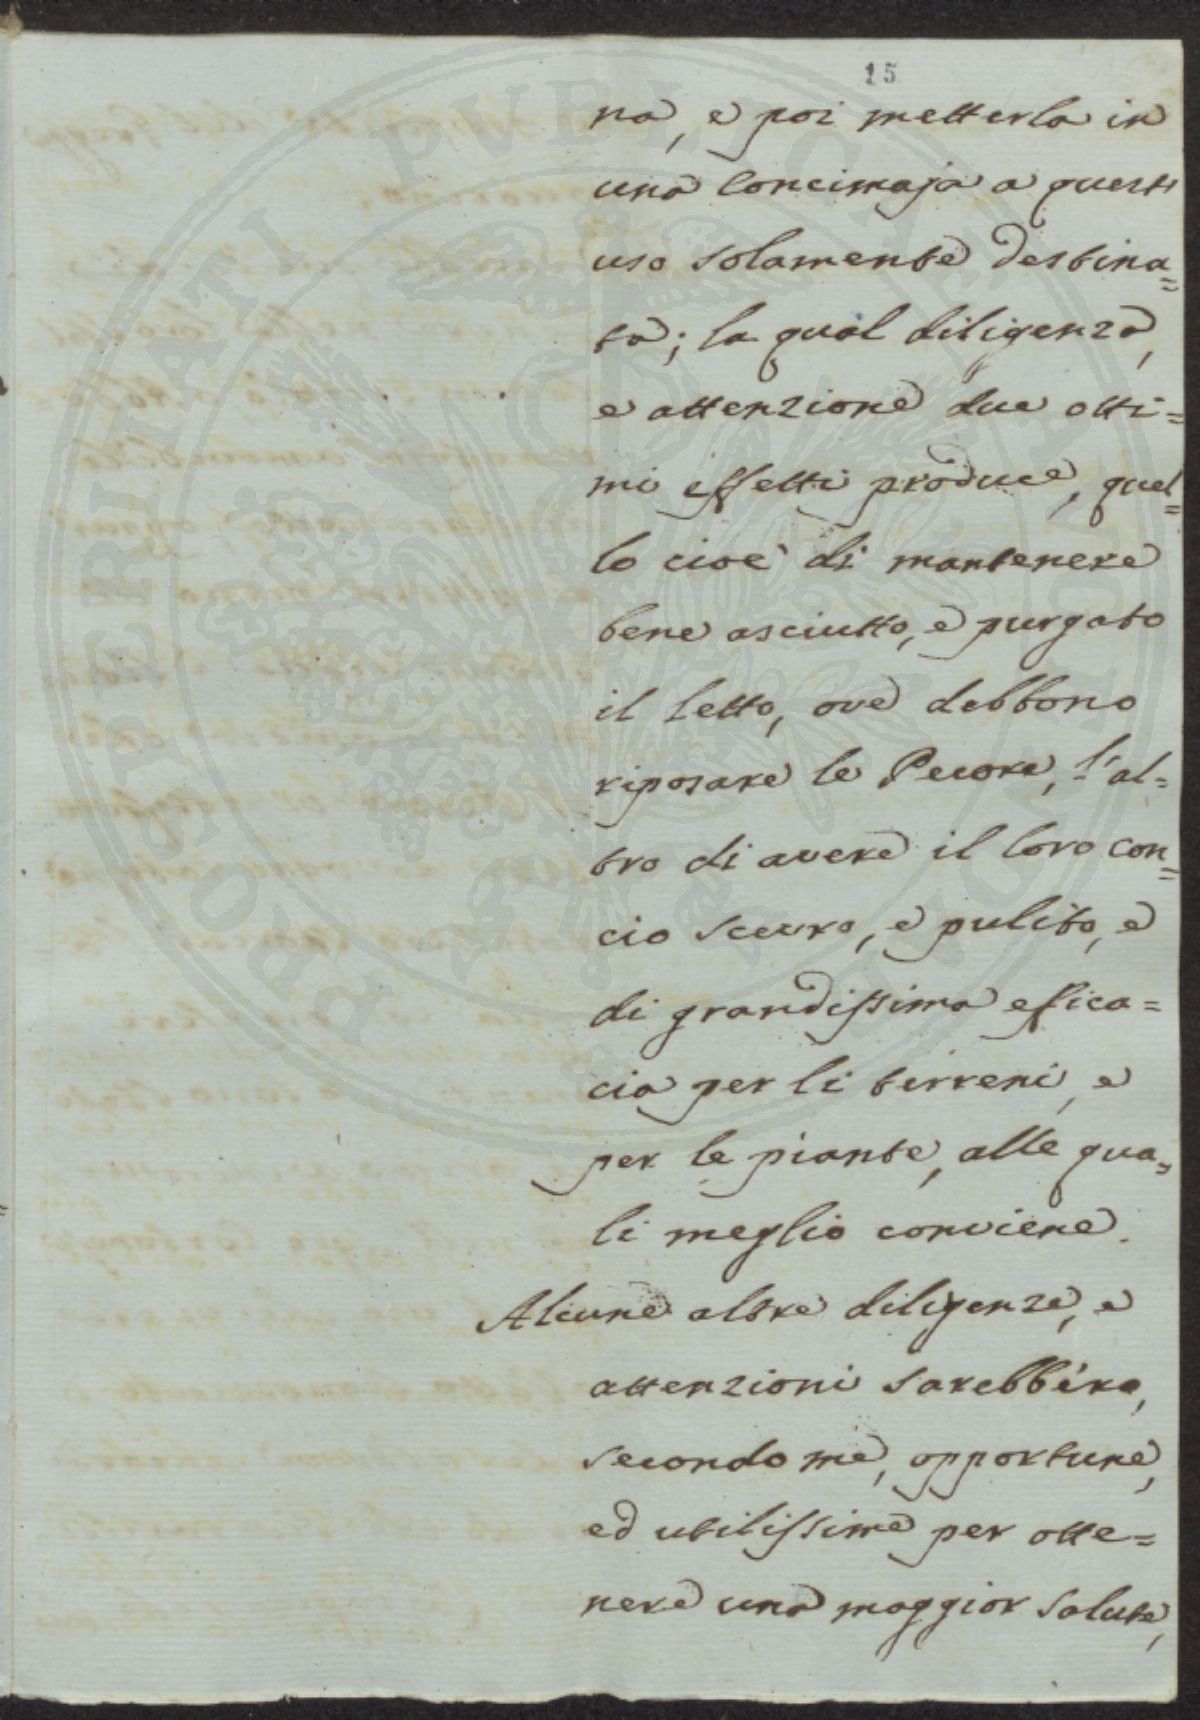 15
na, e poi metterla in
una Concimaja a questo
uso solamente destina=
ta; la qual diligenza,
e attenzione due otti=
mi effetti produce, quel=
lo cioè di mantenere
bene asciutto, e purgato
il letto, ove debbono
riposare le Pecore, l'al=
tro di avere il loro con=
cio scevro, e pulito, e
di grandissima effica=
cia per li terreni, e
per le piante, alle qua=
li meglio conviene.
Alcune altre diligenze, e
attenzioni sarebbero,
secondo me, opportune,
ed utilissime per otte=
nere una maggior salute,
PROSPERITATI PUBLICAE AUGENDAE